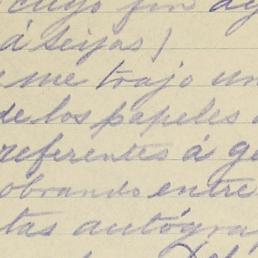 cuyo fin ay
á seijas)
me trajo un
de los papeles
referentes á ge
obrando entre
tas autógra